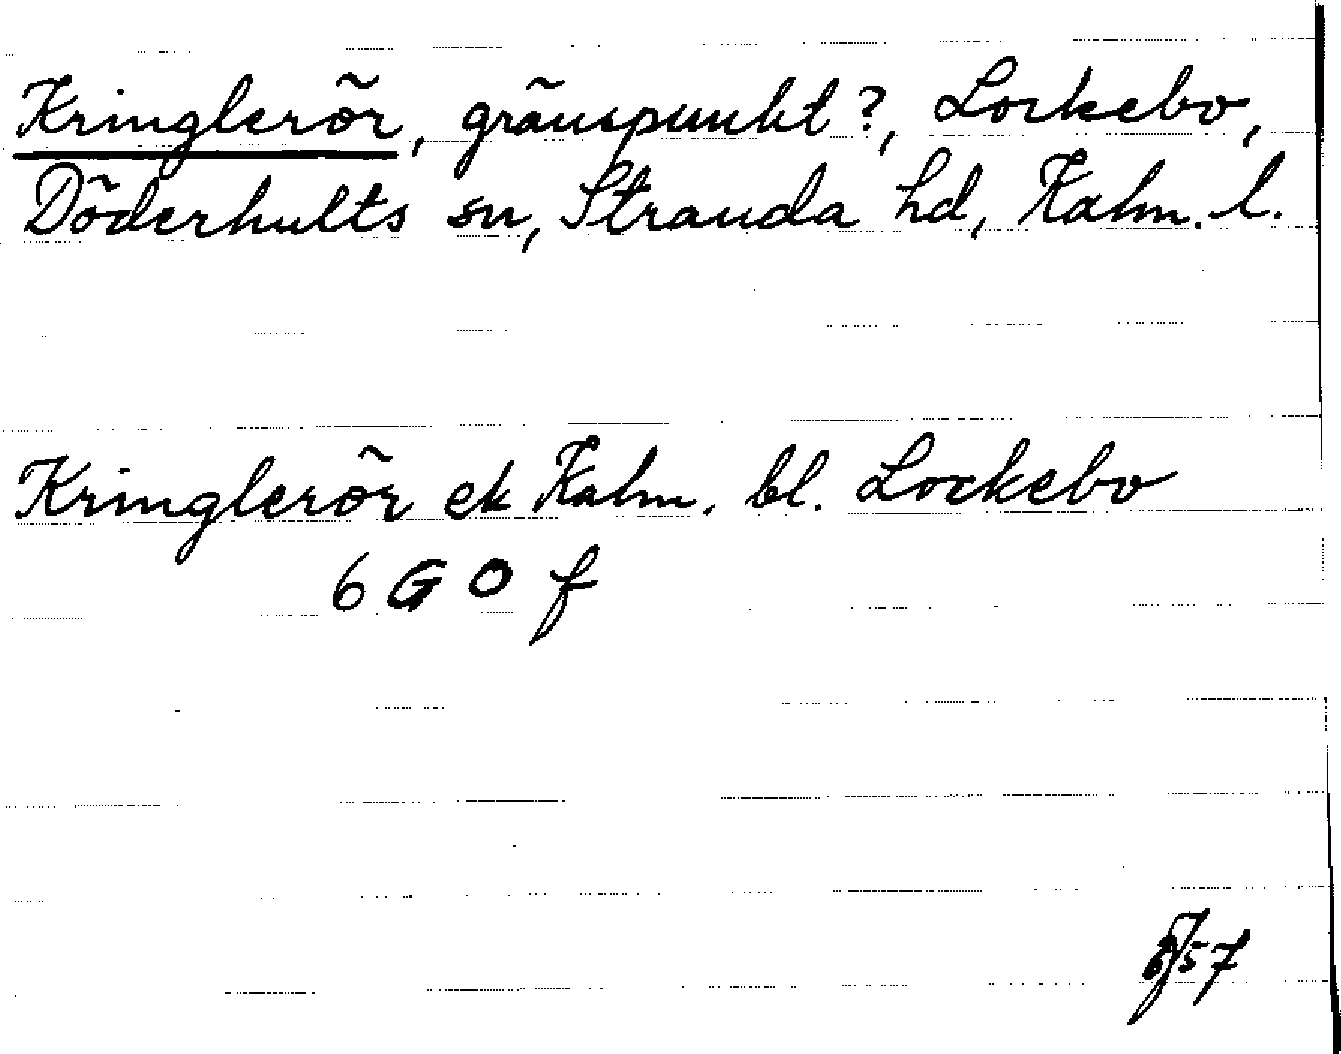 Kringlerör, gränspunkt?, Lockebo,
Döderhults sn, Stranda hd, Kalm. l.
Kringlerör ek Kalm. bl. Lockebo
6 G O f